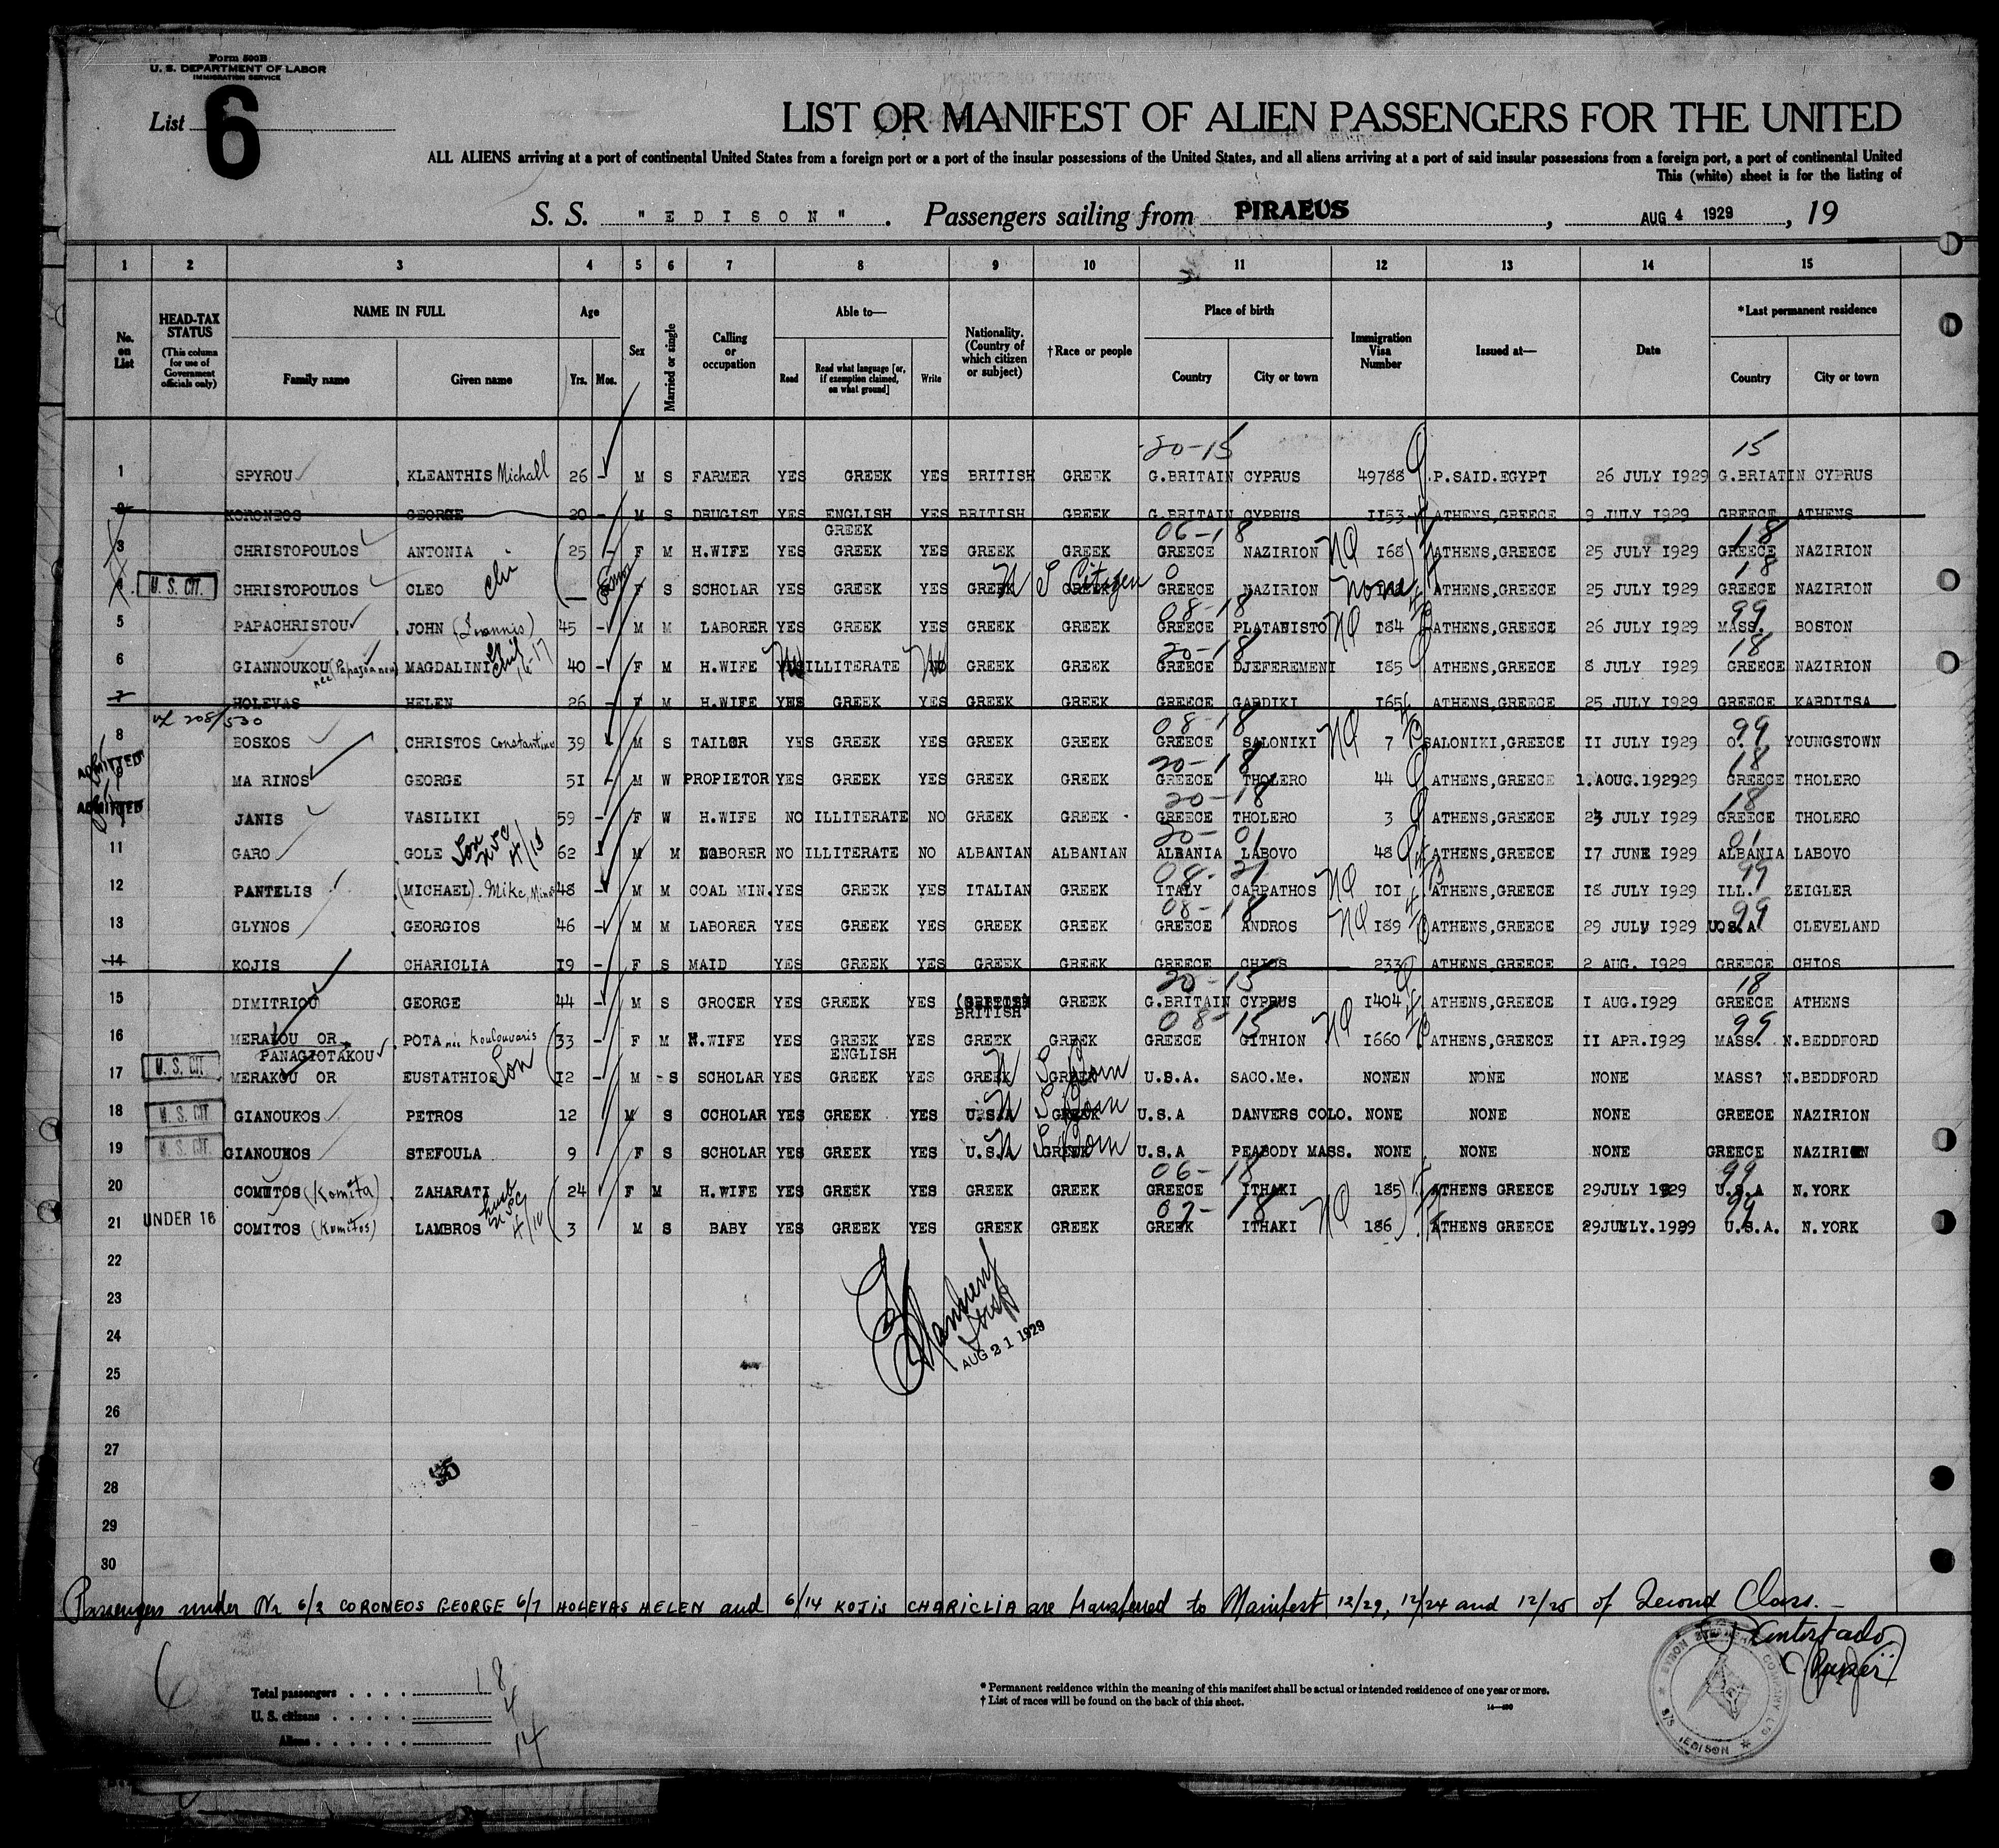 Form 500B
U. S. DEPARTMENT OF LABOR
IMMIGRATION SERVICE
List 6
LIST OR MANIFEST OF ALIEN PASSENGERS FOR THE UNITED
ALL ALIENS arriving at a port of continental United States from a foreign port or a port of the insular possessions of the United States, and all aliens arriving at a port of said insular possessions from a foreign port, a port of continental United
This (white) sheet is for the listing of
S. S. "EDISON". Passengers sailing from PIRAEUS, AUG 4 1929, 19
1 2 3 4 5 6 7 8 9 10 11 12 13 14 15
No. on List
HEAD-TAX STATUS (This column for use of Government officials only)
NAME IN FULL Family name Given name
Age Yrs. Mos.
Sex
Married or single
Calling or occupation
Able to— Read Read what language [or, if exemption claimed, on what ground] Write
Nationality. (Country of which citizen or subject)
†Race or people
Place of birth Country City or town
Immigration Visa Number
Issued at—
Date
*Last permanent residence Country City or town
20-15 15
1 SPYROU KLEANTHIS Michall 26 - M S FARMER YES GREEK YES BRITISH GREEK G.BRITAIN CYPRUS 49788 P.SAID.EGYPT 26 JULY 1929 G.BRIATIN CYPRUS
2 KORONEOS GEORGE 20 - M S DRUGIST YES ENGLISH GREEK YES BRITISH GREEK G.BRITAIN CYPRUS 1153 ATHENS,GREECE 9 JULY 1929 GREECE ATHENS
06-18 18
3 CHRISTOPOULOS ANTONIA 25 - F M H.WIFE YES GREEK YES GREEK GREEK GREECE NAZIRION NQ 168 ATHENS,GREECE 25 JULY 1929 GREECE NAZIRION
18
4 U. S. CIT. CHRISTOPOULOS CLEO F S SCHOLAR YES GREEK YES GREEK U S Citizen GREECE NAZIRION none ATHENS,GREECE 25 JULY 1929 GREECE NAZIRION
08-18 99
5 PAPACHRISTOU JOHN (Ioannis) 45 - M M LABORER YES GREEK YES GREEK GREEK GREECE PLATANISTO NQ 184 ATHENS,GREECE 26 JULY 1929 MASS. BOSTON
20-18 18
6 GIANNOUKOU MAGDALINI 40 - F M H.WIFE YES ILLITERATE NO GREEK GREEK GREECE DJEFEREMENI 185 ATHENS,GREECE 8 JULY 1929 GREECE NAZIRION
7 HOLEVAS HELEN 26 - F M H.WIFE YES GREEK YES GREEK GREEK GREECE GARDIKI 165 ATHENS,GREECE 25 JULY 1929 GREECE KARDITSA
208/530 08-18 99
8 BOSKOS CHRISTOS Constantine 39 - M S TAILOR YES GREEK YES GREEK GREEK GREECE SALONIKI NQ 7 SALONIKI,GREECE 11 JULY 1929 O. YOUNGSTOWN
ADMITTED 20-18 18
MARINOS GEORGE 51 - M W PROPIETOR YES GREEK YES GREEK GREEK GREECE THOLERO 44 ATHENS,GREECE 1.AOUG.192929 GREECE THOLERO
ADMITTED 20-18 18
JANIS VASILIKI 59 - F W H.WIFE NO ILLITERATE NO GREEK GREEK GREECE THOLERO 3 ATHENS,GREECE 23 JULY 1929 GREECE THOLERO
20-01 01
11 GARO GOLE Son USC 4/15 62 - M M LABORER NO ILLITERATE NO ALBANIAN ALBANIAN ALBANIA LABOVO 48 ATHENS,GREECE 17 JUNE 1929 ALBANIA LABOVO
08-21 99
12 PANTELIS (MICHAEL). Mike, 48 - M M COAL MIN. YES GREEK YES ITALIAN GREEK ITALY CARPATHOS NQ 101 ATHENS,GREECE 18 JULY 1929 ILL. ZEIGLER
08-18 99
13 GLYNOS GEORGIOS 46 - M M LABORER YES GREEK YES GREEK GREEK GREECE ANDROS NQ 189 ATHENS,GREECE 29 JULY 1929 U.S.A CLEVELAND
14 KOJIS CHARICLIA 19 - F S MAID YES GREEK YES GREEK GREEK GREECE CHIOS 233 ATHENS,GREECE 2 AUG. 1929 GREECE CHIOS
20-15 18
15 DIMITRIOU GEORGE 44 - M S GROCER YES GREEK YES BRITISH GREEK G.BRITAIN CYPRUS 1404 ATHENS,GREECE 1 AUG.1929 GREECE ATHENS
08-15 99
16 MERAKOU OR PANAGIOTAKOU POTA née Koulouvaris 33 - F M H.WIFE YES GREEK ENGLISH YES GREEK GREEK GREECE GITHION NQ 1660 ATHENS,GREECE 11 APR.1929 MASS. N.BEDDFORD
17 U. S. CIT MERAKOU OR EUSTATHIOS Son 12 - M - S SCHOLAR YES GREEK YES GREEK U S Born U.S.A. SACO.Me. NONEN NONE NONE MASS? N.BEDDFORD
18 U. S. CIT GIANOUKOS PETROS 12 M S CCHOLAR YES GREEK YES U.S.A GREEK U S Born U.S.A DANVERS COLO. NONE NONE NONE GREECE NAZIRION
19 U. S. CIT. GIANOUKOS STEFOULA 9 F S SCHOLAR YES GREEK YES U.S.A GREEK U S Born U.S.A PEABODY MASS. NONE NONE NONE GREECE NAZIRION
06-18 99
20 COMITOS (Komita) ZAHARATI 24 F M H.WIFE YES GREEK YES GREEK GREEK GREECE ITHAKI 185 ATHENS GREECE 29JULY 1929 U.S.A N.YORK
husb USC 4/10 07-18 99
21 UNDER 16 COMITOS (Komitos) LAMBROS 3 M S BABY YES GREEK YES GREEK GREEK GREEK ITHAKI NQ 186 ATHENS GREECE 29JUELY.1929 U.S.A. N.YORK
22
23
24
AUG 21 1929
25
26
27
28
29
30
Passengers under Nr 6/2 CORONEOS GEORGE 6/7 HOLEVAS HELEN and 6/14 KOJIS CHARICLIA are transferred to Manifest 12/29, 12/24 and 12/25 of Second Class.—
6
Total passengers 18
U. S. citizens 4
Aliens 14
* Permanent residence within the meaning of this manifest shall be actual or intended residence of one year or more.
† List of races will be found on the back of this sheet.
(Purser)
BYRON STEAMSHIP COMPANY LTD
S/S EDISON